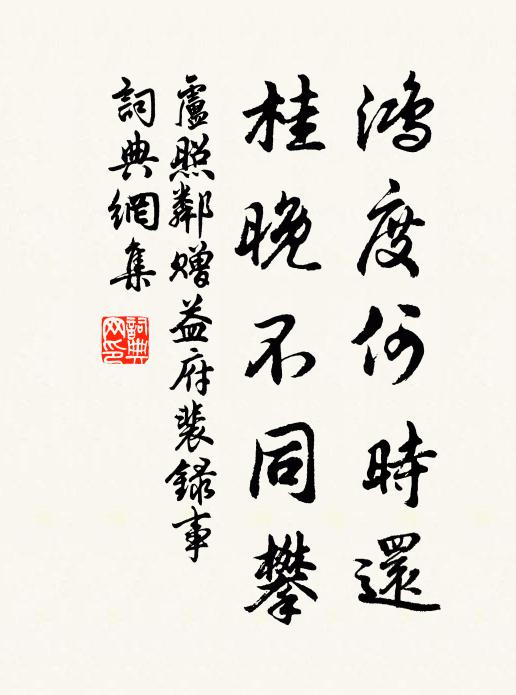 鴻度何時還
桂晚不同攀
盧照鄰贈益府裴錄事
詞典網集
詞典网印